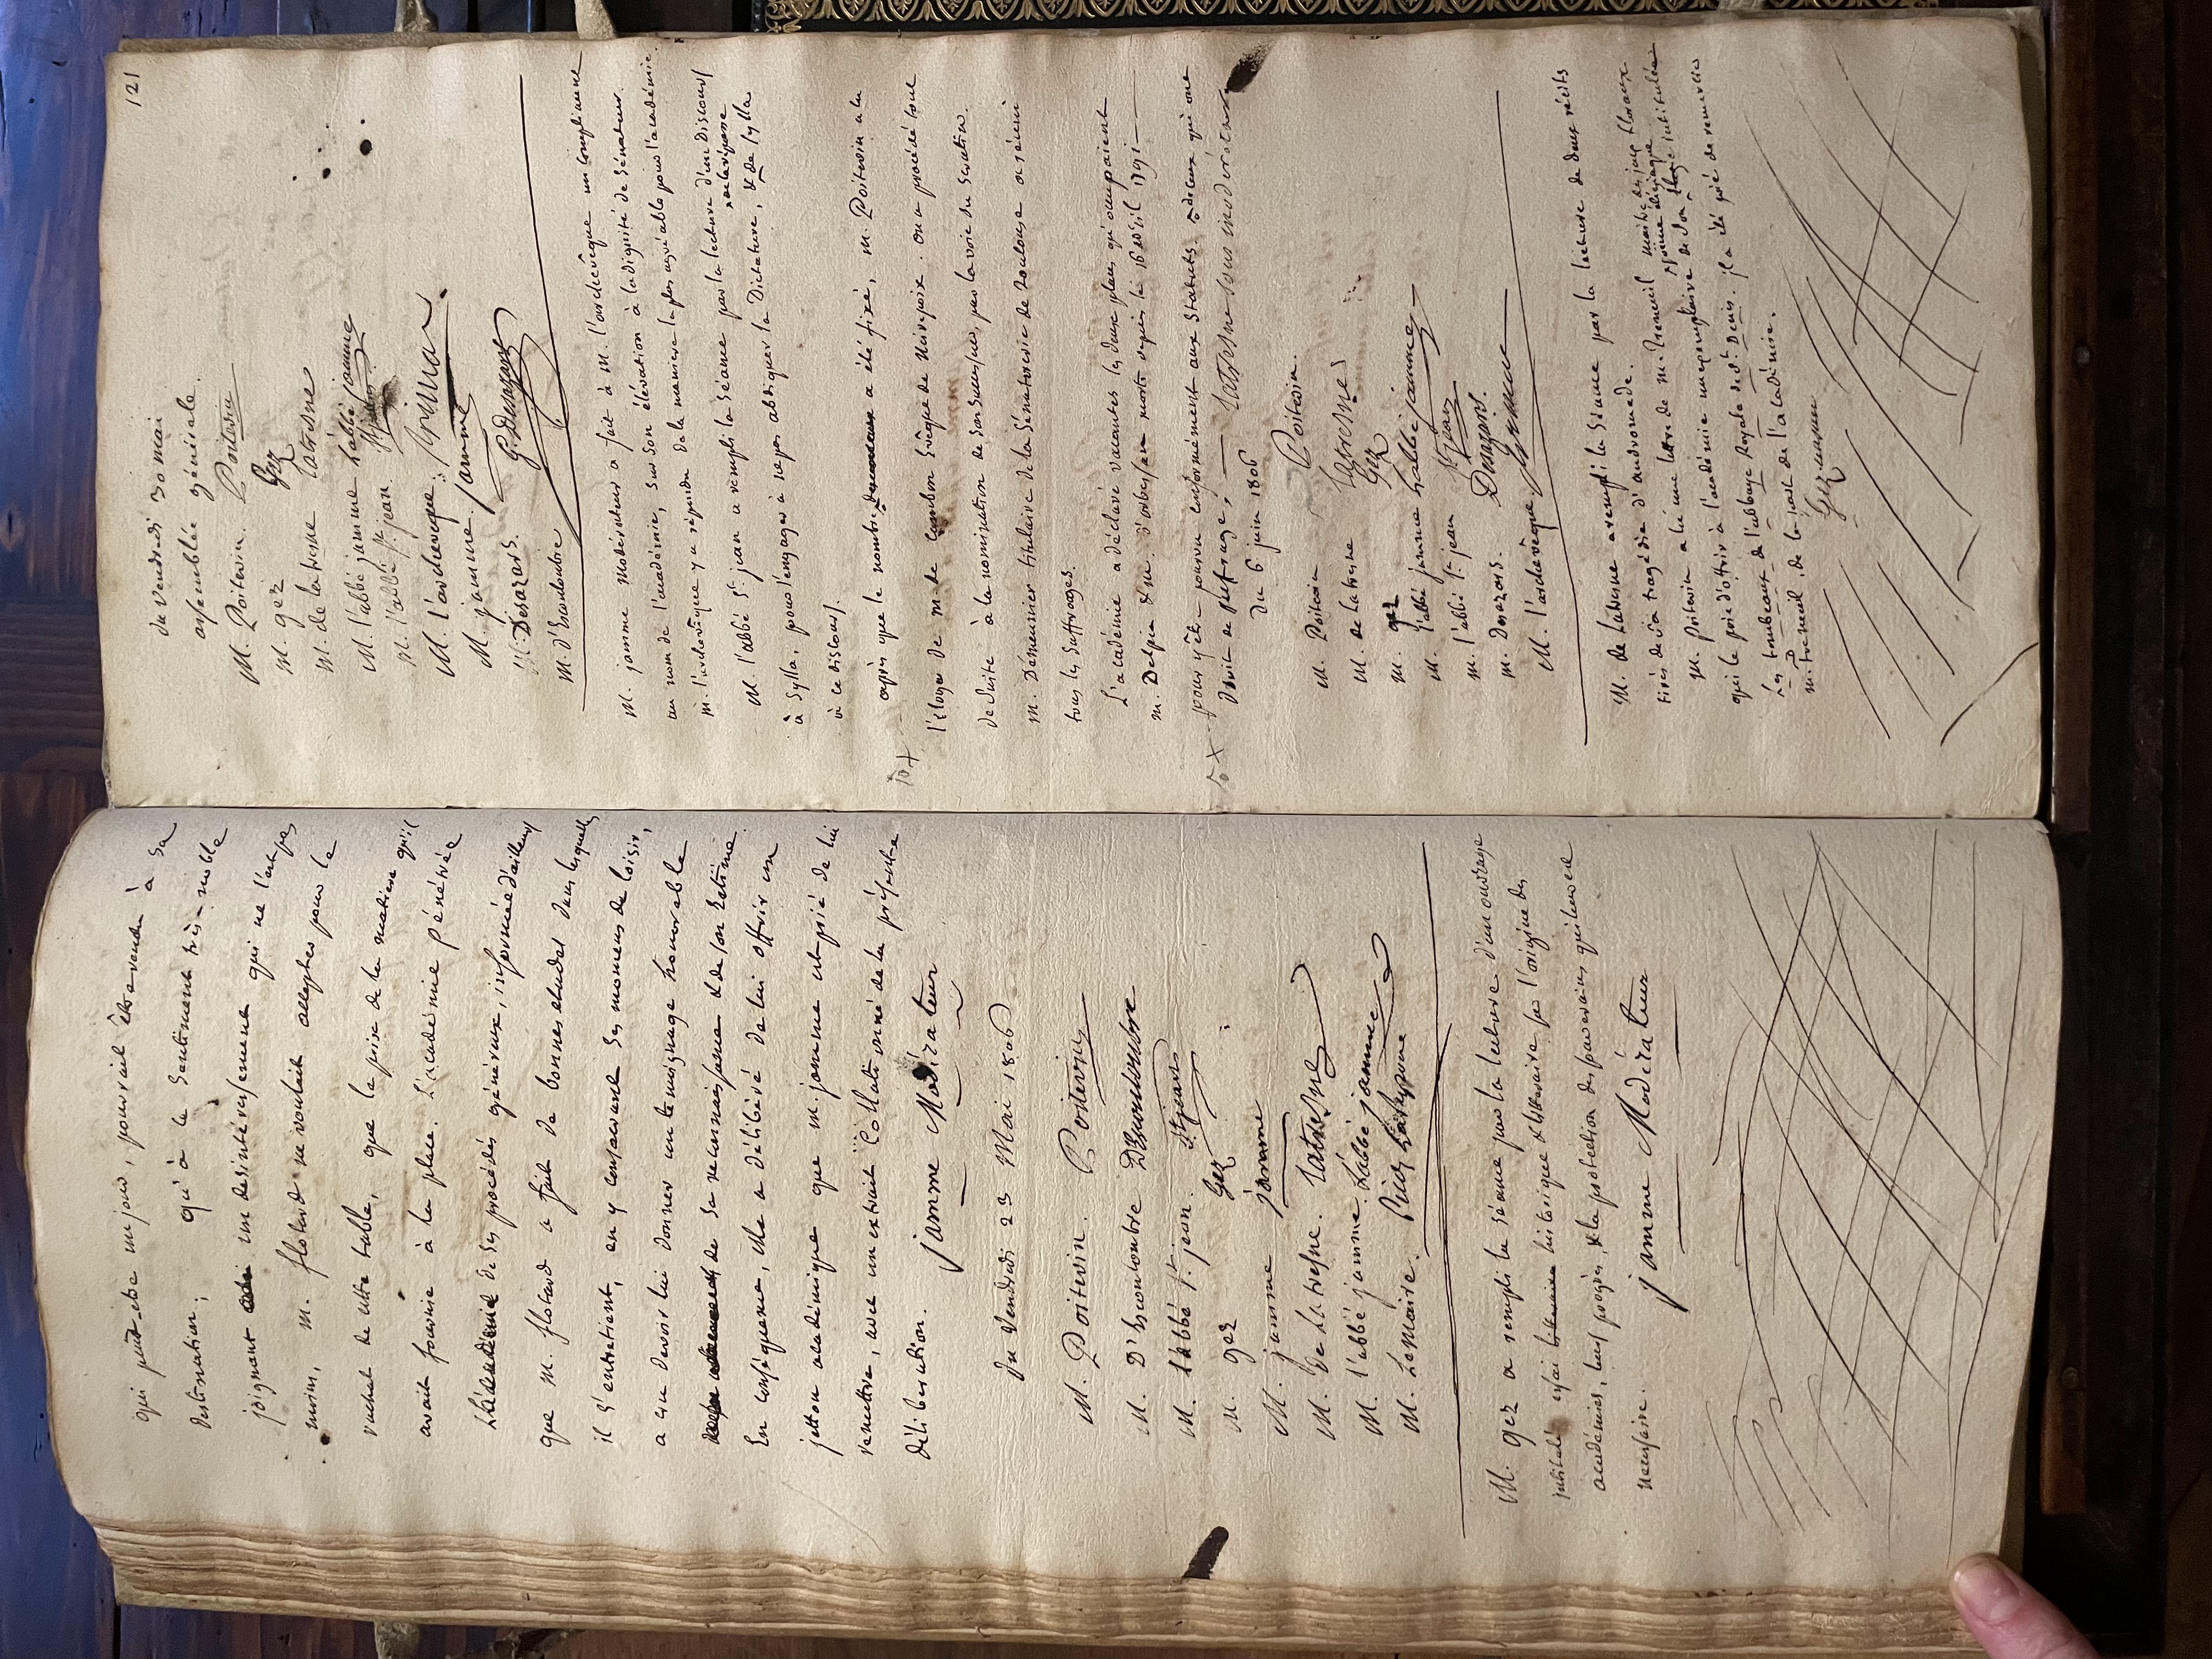 qui peut-etre un jour, pourrait être rendu à sa
destination; qu'à ce sentiment très-noble
joignant un desintéressement qui ne l'est pas
moins, M. flotard ne voulait accepter pour le
rachat de cette table, que le prix de la matiere qu'il
avait fournie à la place. L'académie pénétrée
de ces procédés généreux, informée d'ailleurs
que M. flotard a fait de bonnes etudes dans lesquelles
il s'entretient, en y consacrant ses momens de loisir,
a cru devoir lui donner un temoignage honorable
de sa reconnaissance & de son Estime.
En conséquence, elle a délibéré de lui offrir un
jetton académique que m. jamme est prié de lui
remettre, avec un extrait collationné de la présente
délibération. jamme Modérateur
Du Vendredi 23 Mai 1806
M. Poitevin. Poitevin
M. D'Escouloubre D'Escouloubre
M. l'abbé St. jean. St jean
M. gez Gez
M. jamme jamme
M. De Latresne. Latresne
M. l'abbé jamme. L'abbé jamme
M. Lemaire.
M. gez a rempli la séance par la lecture d'un ouvrage
intitulé essai historique & litteraire sur l'origine des
académies, leurs progrès, & la protection des souverains qui leur est
necessaire. jamme Modérateur
121
du vendredi 30 mai
assemblée générale.
M. Poitevin. Poitevin
M. gez Gez
M. de la tresne Latresne
M. l'abbé jamme L'abbé jamme
M. l'abbé St. jean. St jean
M. l'archeveque. primat
M. jamme. jamme
M. Desazars. G. Desazars
M. d'Escouloubre
M. jamme modérateur a fait à M. l'archevêque un compliment
au nom de l'académie, sur son élévation à la dignité de Sénateur.
M. l'archevêque y a répondu de la maniere la plus agréable pour l'académie.
M. l'abbé St. jean a rempli la séance par la lecture d'un Discours
à Sylla, pour l'engager à ne pas abdiquer la Dictature, & de la réponse de sylla
à ce discours.
après que le nombre a été fixé, M. Poitevin a lu
l'éloge de M. de Cambon Evêque de Mirepoix. on a procédé tout
de suite à la nomination de son successeur, par la voie du scrutin.
M. Démeunier titulaire de la Sénatorerie de Toulouse a réuni
tous les suffrages.
L'académie a déclaré vacantes les deux places qu'occupaient
M. Delpy & M. d'orbessan morts depuis le 16 avril 1791
pour y être pourvu conformément aux Statuts. & à ceux qui ont
Droit de suffrage; Latresne sous modérateur
Du 6 juin 1806
M. Poitevin Poitevin.
M. de Latresne Latresne
M. gez Gez
M. l'abbé jamme L'abbé jamme
M. l'abbé St. jean St jean
M. Desazars. Desazars.
M. l'archevêque. primat
M. de Latresne a rempli la séance par la lecture de deux récits
tirés de sa tragédie d'andromede.
M. Poitevin a lu une lettre de M. treneuil maitre des jeux floraux
qui le prie d'offrir à l'académie un exemplaire de son poëme élégiaque intitulée
les tombeaux de l'abbaye Royale de St. Denis. Il a été prié de remercier
M. treneuil, de la part de l'académie.
Gez